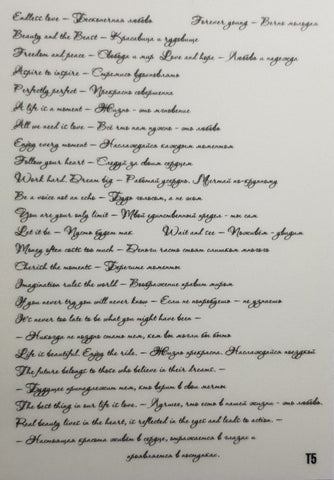 Endless love — Бесконечная любовь Forever young — Вечно молодая
Beauty and the Beast — Красавица и чудовище
Freedom and peace — Свобода и мир Love and hope — Любовь и надежда
Aspire to inspire — Стремись вдохновлять
Perfectly perfect — Прекрасно совершенна
A life is a moment — Жизнь - это мгновение
All we need it love — Всё что нам нужно - это любовь
Enjoy every moment — Наслаждайся каждым моментом
Follow your heart — Следуй за своим сердцем
Work hard. Dream big — Работай усердно. Мечтай по-крупному
Be a voice not an echo — Будь голосом, а не эхом
You are your only limit — Твой единственный предел - ты сам
Let it be — Пусть будет так Wait and see — Поживём - увидим
Money often costs too much — Деньги часто стоят слишком много
Cherish the moments — Берегите моменты
Imagination rules the world — Воображение правит миром
If you never try you will never know — Если не попробуешь - не узнаешь
It's never too late to be what you might have been —
— Никогда не поздно стать тем, кем вы могли бы быть
Life is beautiful. Enjoy the ride. — Жизнь прекрасна. Наслаждайся поездкой
The future belongs to those who believe in their dreams. —
— Будущее принадлежит тем, кто верит в свои мечты
The best thing in our life is love. — Лучшее, что есть в нашей жизни - это любовь.
Real beauty lives in the heart, it reflected in the eyes and leads to action. —
— Настоящая красота живёт в сердце, отражается в глазах и
проявляется в поступках.
T5